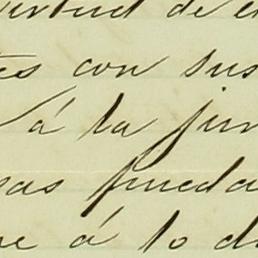 virtud de e
tes con sus
á la jun
gas pueda
re á lo di